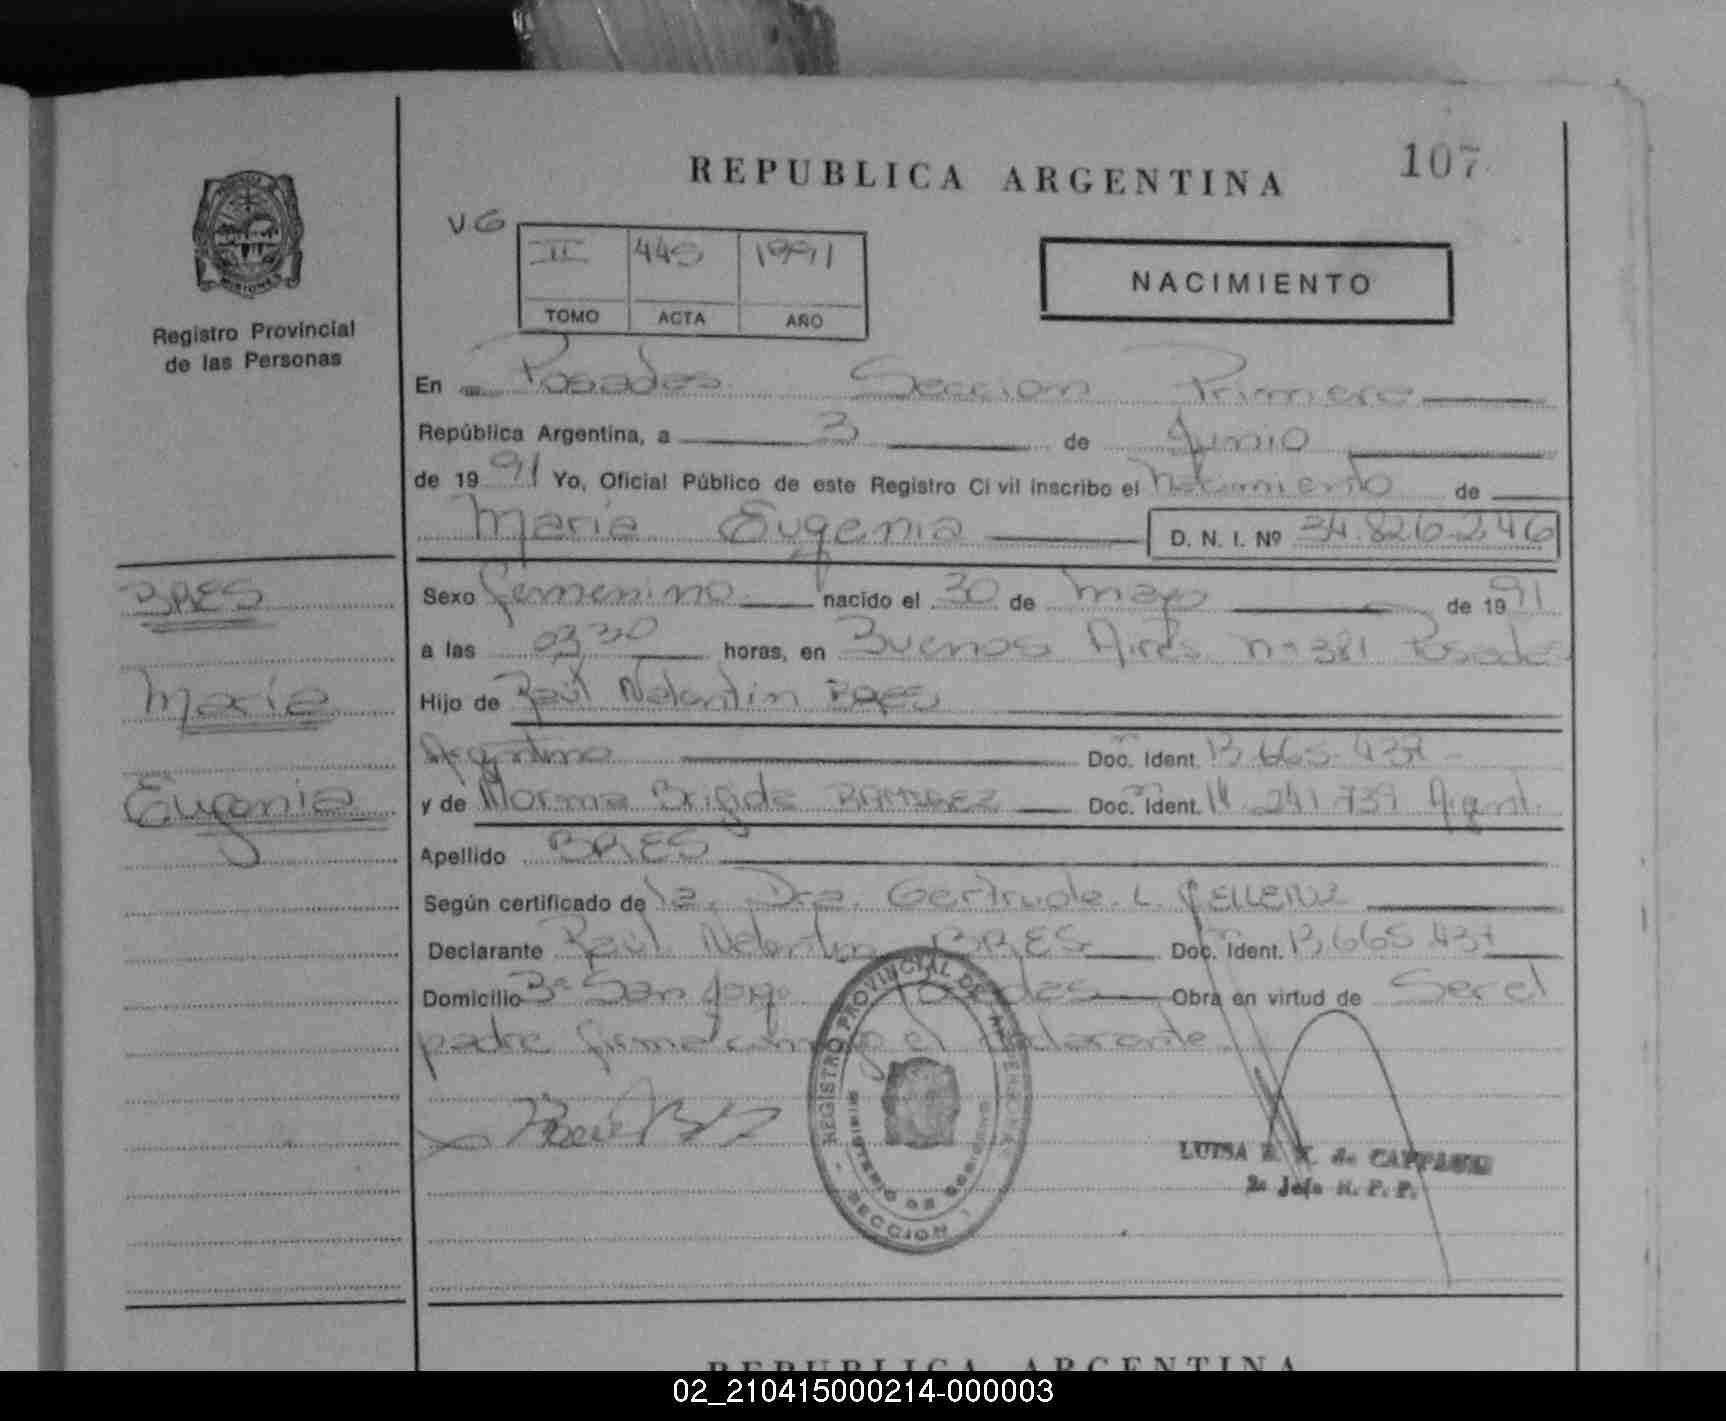 107
REPUBLICA ARGENTINA
VG
II 445 1991
TOMO ACTA AÑO
NACIMIENTO
Registro Provincial
de las Personas
En Posadas Seccion Primera
República Argentina, a 3 de Junio
de 1991 Yo, Oficial Público de este Registro Civil inscribo el Nacimiento de
Maria Eugenia D. N. I. Nº 34.826.246
BRES
Maria
Eugenia
Sexo femenino nacido el 30 de mayo de 1991
a las 03,30 horas, en Buenos Aires nº 381 Posadas
Hijo de Raúl Valentin BRES
Argentino Doc. Ident. 13.665.437
y de Norma Brigida RAMIREZ Doc. Ident. 14.241.739 Argent.
Apellido BRES
Según certificado de la Dra. Gertrude L.
Declarante Raúl Valentin BRES Doc. Ident. 13.665.437
Domicilio Bº San Jorge Posadas Obra en virtud de Ser el
padre firma conmigo el declarante
REGISTRO PROVINCIAL DE LAS PERSONAS
MINISTERIO DE GOBIERNO
SECCION 1
LUISA de
2a Jefa R. P. P.
REPUBLICA ARGENTINA
02_210415000214-000003